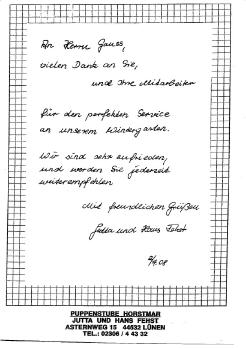 An Herrn Gauss,
vielen Dank an Sie,
und Ihre Mitarbeiter
für den perfekten Service
an unserem Wintergarten.
Wir sind sehr zufrieden,
und werden Sie jederzeit
weiterempfehlen
Mit freundlichen Grüßen
Jutta und Hans Fehst
PUPPENSTUBE HORSTMAR
JUTTA UND HANS FEHST
ASTERNWEG 15 44532 LÜNEN
TEL.: 02306 / 4 43 32